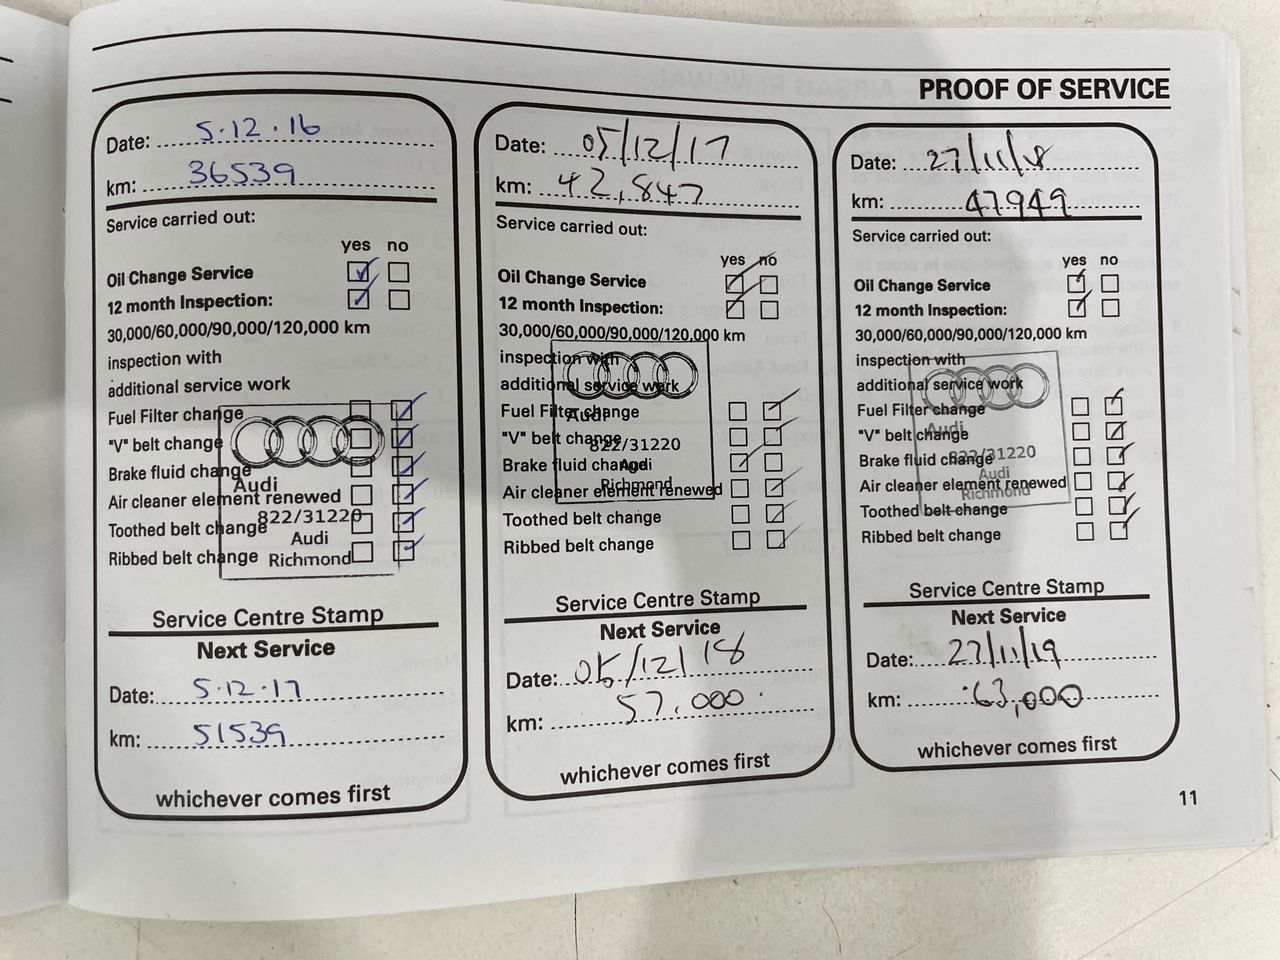 PROOF OF SERVICE
Date: 5.12.16
km: 36539
Service carried out:
yes no
Oil Change Service
12 month Inspection:
30,000/60,000/90,000/120,000 km
inspection with
additional service work
Fuel Filter change
"V" belt change
Brake fluid change
Air cleaner element renewed
Toothed belt change
Ribbed belt change
Audi
822/31220
Audi
Richmond
Service Centre Stamp
Next Service
Date: 5.12.17
km: 51539
whichever comes first
Date: 05/12/17
km: 42,847
Service carried out:
yes no
Oil Change Service
12 month Inspection:
30,000/60,000/90,000/120,000 km
inspection with
additional service work
Fuel Filter change
"V" belt change
Brake fluid change
Air cleaner element renewed
Toothed belt change
Ribbed belt change
Audi
822/31220
Audi
Richmond
Service Centre Stamp
Next Service
Date: 05/12/18
km: 57,000
whichever comes first
Date: 27/11/18
km: 47949
Service carried out:
yes no
Oil Change Service
12 month Inspection:
30,000/60,000/90,000/120,000 km
inspection with
additional service work
Fuel Filter change
"V" belt change
Brake fluid change
Air cleaner element renewed
Toothed belt change
Ribbed belt change
Audi
822/31220
Audi
Richmond
Service Centre Stamp
Next Service
Date: 27/11/19
km: 63,000
whichever comes first
11